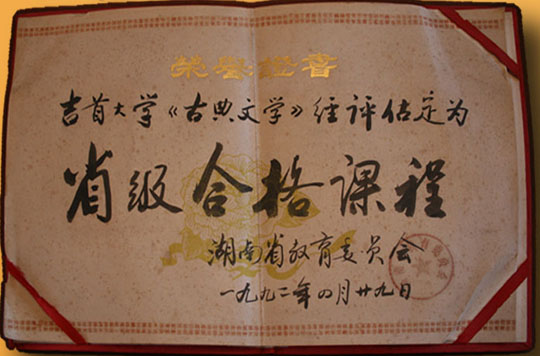 荣誉證書
吉首大学《古典文学》经评估定为
省级合格课程
湖南省教育委员会
一九九二年四月廿九日